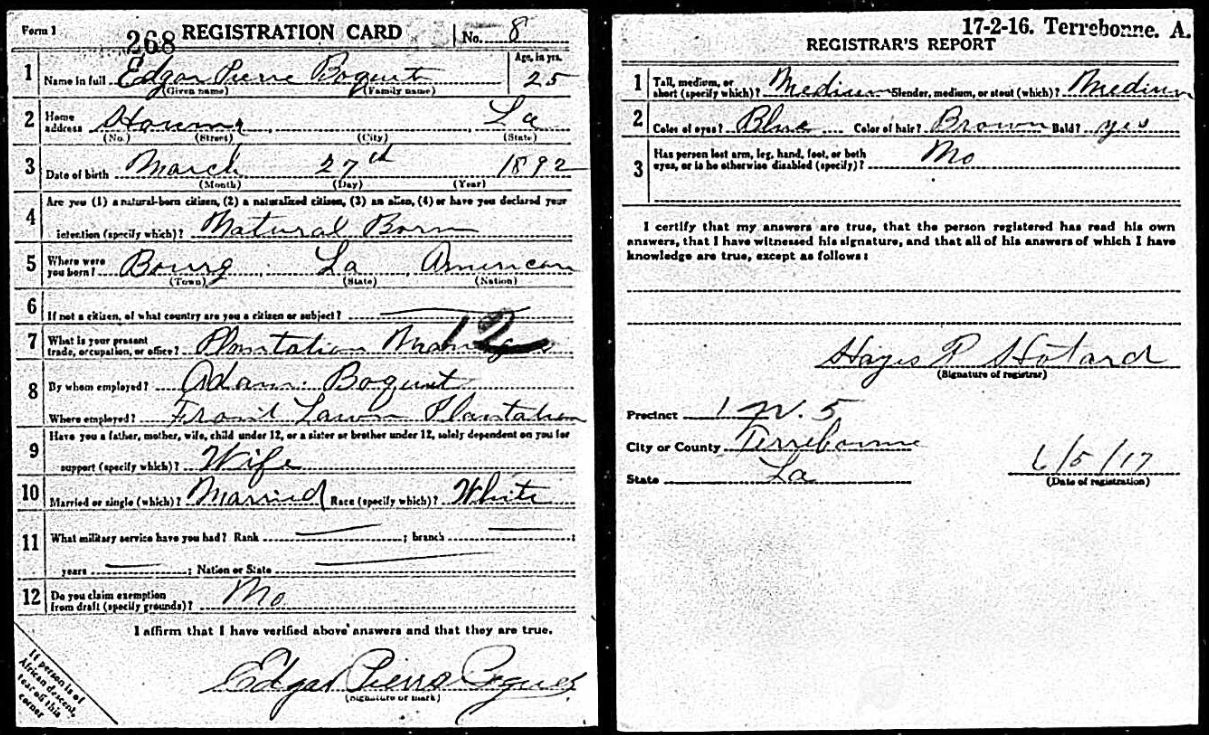 Form 1
268 REGISTRATION CARD No. 8
1 Name in full Edgar Pierre Boquet Age, in yrs. 25
(Given name) (Family name)
2 Home address Houma La
(No.) (Street) (City) (State)
3 Date of birth March 27th 1892
(Month) (Day) (Year)
4 Are you (1) a natural-born citizen, (2) a naturalized citizen, (3) an alien, (4) or have you declared your
intention (specify which)? Natural Born
5 Where were you born? Bourg La American
(Town) (State) (Nation)
6 If not a citizen, of what country are you a citizen or subject?
7 What is your present trade, occupation, or office? Plantation
8 By whom employed? Adam Boquet
Where employed? Front Lawn Plantation
9 Have you a father, mother, wife, child under 12, or a sister or brother under 12, solely dependent on you for
support (specify which)? Wife
10 Married or single (which)? Married Race (specify which)? White
11 What military service have you had? Rank ; branch ;
years ; Nation or State
12 Do you claim exemption from draft (specify grounds)? No
I affirm that I have verified above answers and that they are true.
Edgar Pierre Boquet
(Signature or mark)
If person is of
African descent,
tear off this
corner
17-2-16. Terrebonne. A.
REGISTRAR'S REPORT
1 Tall, medium, or short (specify which)? Medium Slender, medium, or stout (which)? Medium
2 Color of eyes? Blue Color of hair? Brown Bald? yes
3 Has person lost arm, leg, hand, foot, or both eyes, or is he otherwise disabled (specify)? No
I certify that my answers are true, that the person registered has read his own
answers, that I have witnessed his signature, and that all of his answers of which I have
knowledge are true, except as follows:
Hayes R Hotard
(Signature of registrar)
Precinct 1 W. 5
City or County Terrebonne
State La 6/5/17
(Date of registration)